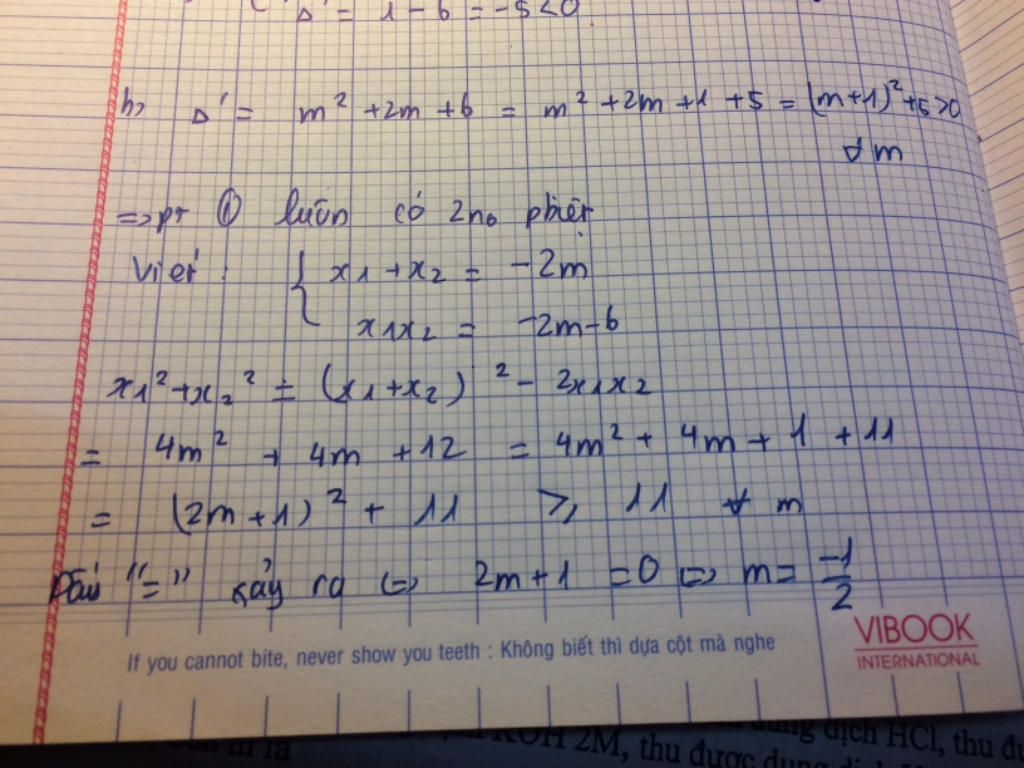 Δ' = 1 - 6 = -5 < 0
b, Δ' = m² + 2m + 6 = m² + 2m + 1 + 5 = (m+1)² + 5 > 0
∀ m
=> pt ① luôn có 2 no pbiệt
Viet : { x1 + x2 = -2m
x1x2 = -2m-6
x1² + x2² = (x1 + x2)² - 2x1x2
= 4m² + 4m + 12 = 4m² + 4m + 1 + 11
= (2m + 1)² + 11 ⩾ 11 ∀ m
Dấu "=" xảy ra <=> 2m + 1 = 0 <=> m = -1/2
If you cannot bite, never show you teeth : Không biết thì dựa cột mà nghe
VIBOOK
INTERNATIONAL
KOH 2M, thu được dung dịch HCl, thu